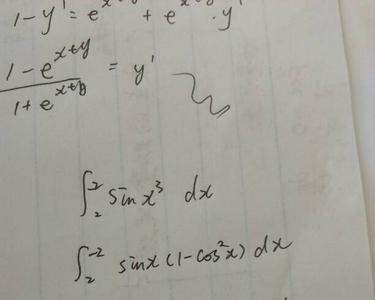 1-y' = e^{x+y} + e^{x+y} · y'
\frac{1-e^{x+y}}{1+e^{x+y}} = y'
∫_2^{-2} sin x^3 dx
∫_2^{-2} sinx (1-cos^2x) dx